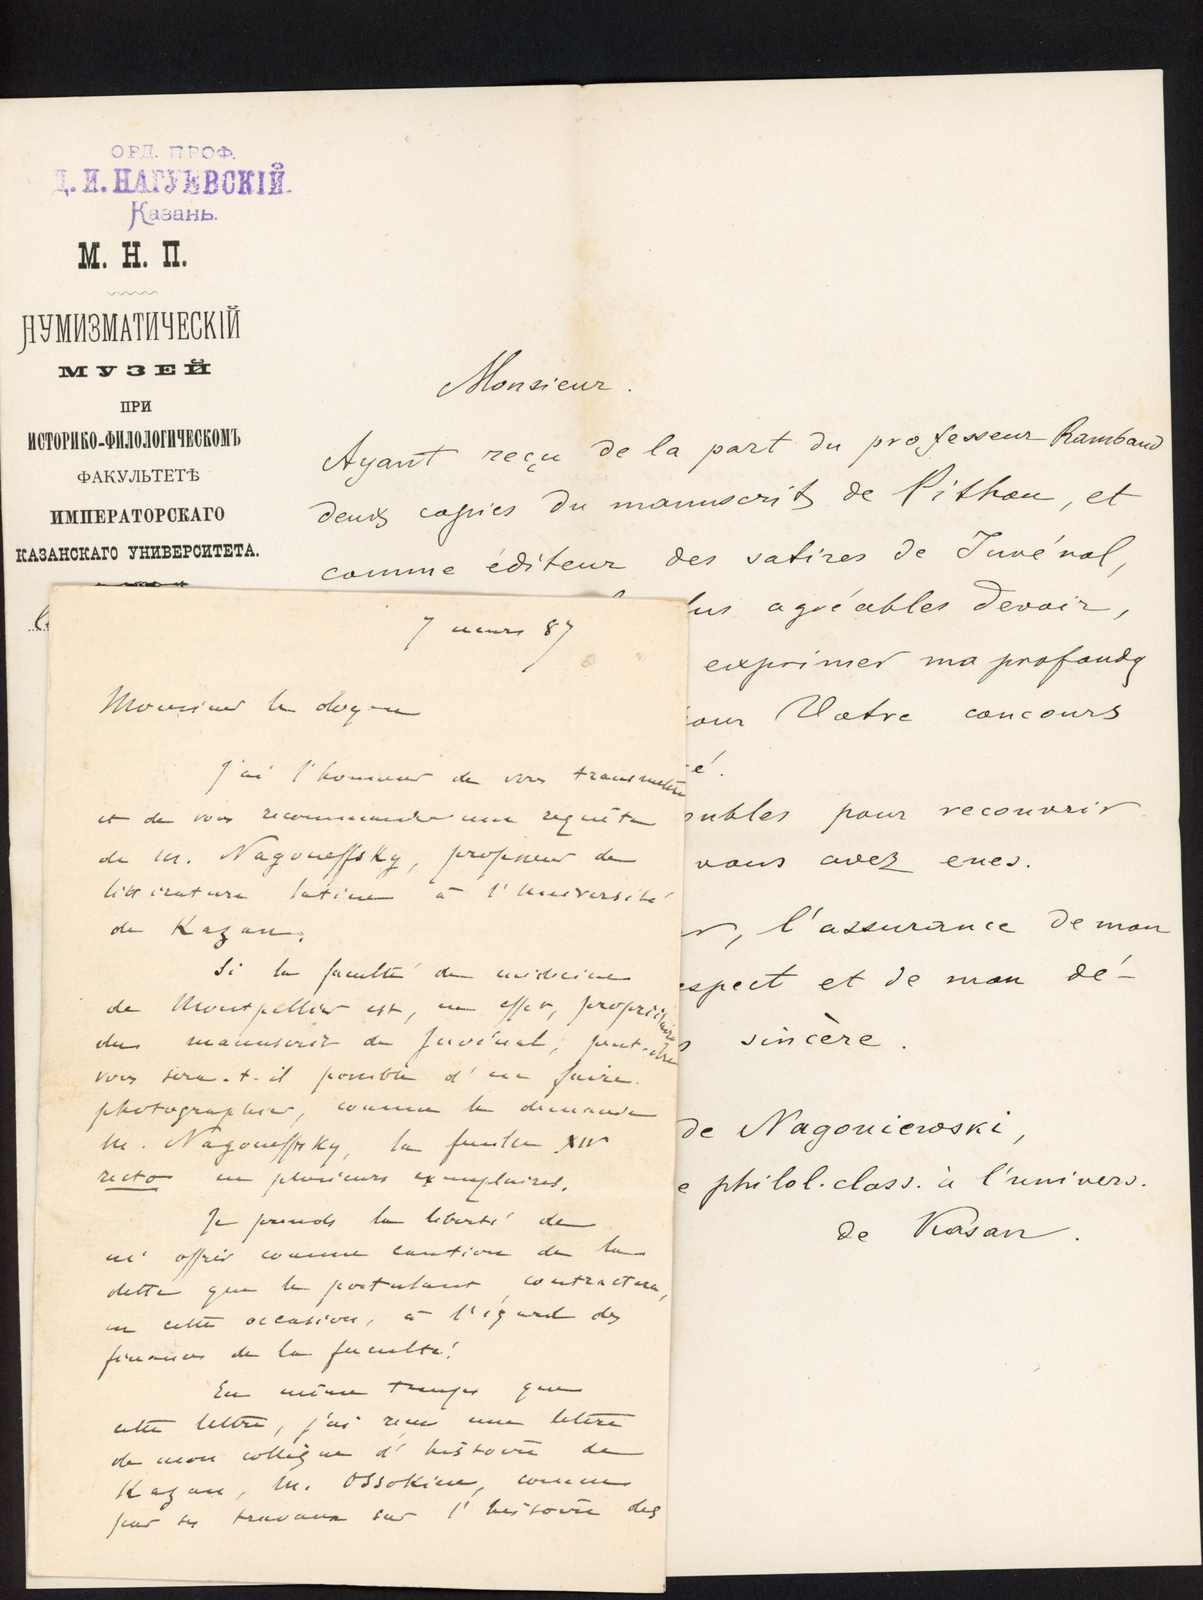 ОРД. ПРОФ.
Д. И. НАГУЕВСКІЙ.
Казань.
М. Н. П.
НУМИЗМАТИЧЕСКІЙ
МУЗЕЙ
ПРИ
ИСТОРИКО-ФИЛОЛОГИЧЕСКОМЪ
ФАКУЛЬТЕТѢ
ИМПЕРАТОРСКАГО
КАЗАНСКАГО УНИВЕРСИТЕТА.
Monsieur.
Ayant reçu de la part du professeur Rambaud
deux copies du manuscrit de Pithou, et
comme éditeur des satires de Juvénal,
plus agréables devoir,
exprimer ma profonde
pour Votre concours
é.
pour recouvrir
vous avez eues.
l'assurance de mon
respect et de mon dé-
sincère.
de Nagouiewski,
philol. class. à l'univers.
de Kasan.
7 mars 87
Monsieur le doyen
J'ai l'honneur de vous transmettre
et de vous recommander une requête
de M. Nagoueffsky, professeur de
littérature latine à l'Université
de Kazan.
Si la faculté de médecine
de Montpellier est, en effet, propriétaire
du manuscrit de Juvénal, peut-être
vous sera-t-il possible d'en faire
photographier, comme le demande
M. Nagoueffsky, la feuille XIV
recto en plusieurs exemplaires.
Je prends la liberté de
m'offrir comme caution de la
dette que le postulant contractera,
en cette occasion, à l'égard des
finances de la faculté.
En même temps que
cette lettre, j'ai reçu une lettre
de mon collègue d'histoire de
Kazan, M. Ossokine, connu
par ses travaux sur l'histoire des